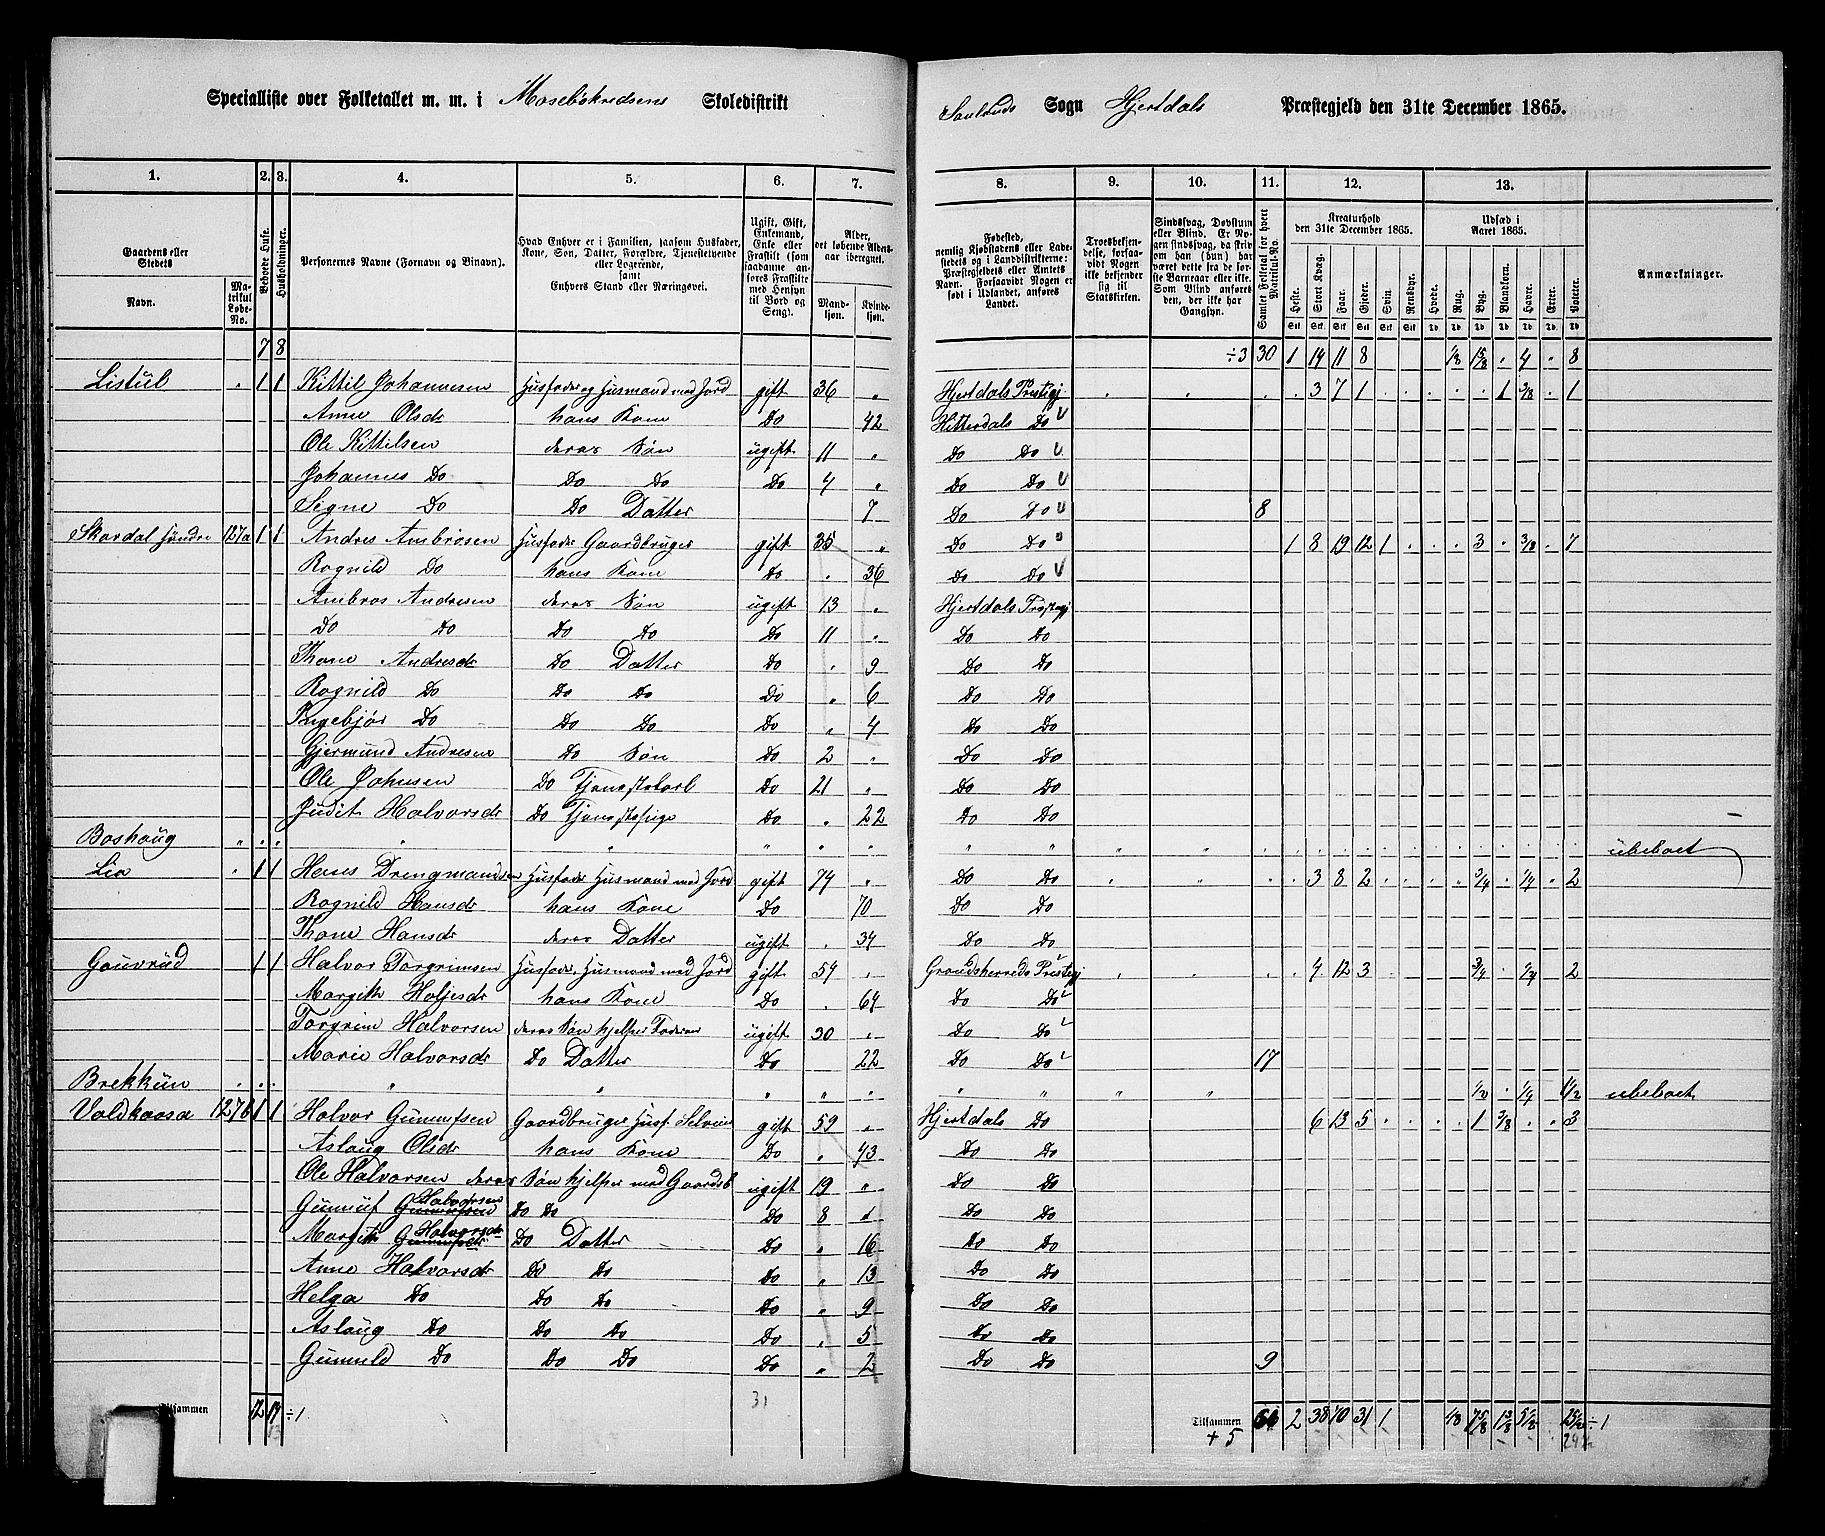 Specialliste over Folketallet m. m. i Mosebøkredsens Skoledistrikt
Saulands Sogn Hjertdals Præstegjeld den 31te December 1865.
1. 2. 3. 4. 5. 6. 7. 8. 9. 10. 11. 12. 13.
Gaardens eller Stedets
Navn.
Matrikul Løbe-No.
Beboede Huse.
Husholdninger.
Personernes Navne (Fornavn og Binavn).
Hvad Enhver er i Familien, saasom Husfader, Kone, Søn, Datter, Forældre, Tjenestetyende eller Logerende, samt Enhvers Stand eller Næringsvei.
Ugift, Gift, Enkemand, Enke eller Fraskilt (som saadanne anføres Fraskilte med Hensyn til Bord og Seng).
Alder, det løbende Aldersaar iberegnet.
Mandkjøn. Kvindekjøn.
Fødested, nemlig Kjøbstadens eller Ladestedets og i Landdistrikterne: Præstegjeldets eller Amtets Navn. Forsaavidt Nogen er født i Udlandet, anføres Landet.
Troesbekjendelse, forsaavidt Nogen ikke bekjender sig til Statskirken.
Sindssvag, Døvstum eller Blind. Er Nogen sindssvag, da skriv om han (hun) har været dette fra de første Barneaar eller ikke. Som Blind anføres den, der ikke har Gangsyn.
Samlet Folketal for hvert Matrikul-No.
Kreaturhold den 31te December 1865.
Heste. Stort Kvæg. Faar. Gjeder. Svin. Rensdyr.
Udsæd i Aaret 1865.
Hvede. Rug. Byg. Blandkorn. Havre. Erter. Poteter.
Anmærkninger.
7 8 ÷3 30 1 14 11 8 1/8 1 5/8 . 4 . 8
Listul " 1 1 Kittil Johannesen Husfader og Husmand med Jord gift 36 " Hjertdals Prestegj . 3 7 1 1 3/8 . 1
Anne Olsdr hans Kone Do 42 Hitterdals Do
Ole Kittilsen deres Søn ugift 11 " Do Do
Johannes Do Do Do Do 4 " Do Do
Signe Do Do Datter 7 Do Do 8
Skardal søndre 127a 1 1 Andres Ambrosen Husfader Gaardbruger gift 35 " Do Do 1 8 19 12 1 . . . 3 . 3/8 . 7
Rognild Do hans Kone Do " 36 Do Do
Ambros Andresen deres Søn ugift 13 " Hjertdals Prestegj
Do Do Do Do Do 11 " Do Do
Thone Andresdr Do Datter Do " 9 Do Do
Rognild Do Do Do Do " 6 Do Do
Ingebjør Do Do Do Do " 4 Do Do
Gjermund Andresen Do Søn Do 2 " Do Do
Ole Johnsen Do Tjenestekarl Do 21 " Do Do
Judit Halvorsdr Do Tjenestepige Do " 22 Do Do
Boshaug " " " ubeboet
Lia " 1 1 Hans Drengmandsen Husfader Husmand med Jord gift 74 " Do Do . 3 8 2 . . . . 3/4 . 1/4 . 2
Rognild Hansdr hans Kone Do 70 Do Do
Thone Hansdr deres Datter ugift . 34 Do Do
Gauvrud 1 1 Halvor Torgrimsen Husfader, Husmand med Jord gift 54 . Gransherreds Prestegj . 4 12 3 3/4 . 1/4 . 2
Margith Holjesdr hans Kone Do . 64 Do Do
Torgrim Halvorsen deres Søn hjelper Faderen ugift 30 " Do Do
Marie Halvorsdr Do Datter Do 22 Do Do 17
Brekkun . . . " " " 1/2 . 1/4 1/2 ubeboet
Valdkaasa 127b 1 1 Halvor Gunnufsen Gaardbruger Husf. Selveier gift 59 " Hjertdals Do 6 13 5 . . . . 1 3/8 . . 3
Aslaug Olsdr hans Kone Do " 43 Do Do
Ole Halvorsen deres Søn hjelper med Gaardsb ugift 19 " Do Do
Gunnuf Gunnufsen Halvorsen Do Do Do 8 " Do Do
Margith Gunnufsdr Halvorsdr Do Datter Do " 16 Do Do
Anne Halvorsdr Do Do Do " 13 Do Do
Helga Do Do Do Do " 9 Do Do
Aslaug Do Do Do Do " 5 Do Do
Gunnild Do Do Do Do " 2 Do Do 9
Tilsammen 12 14 ÷1 31 Tilsammen 64 2 38 70 31 1 1/8 7 5/8 1 3/8 5 1/8 ÷1
13 +5